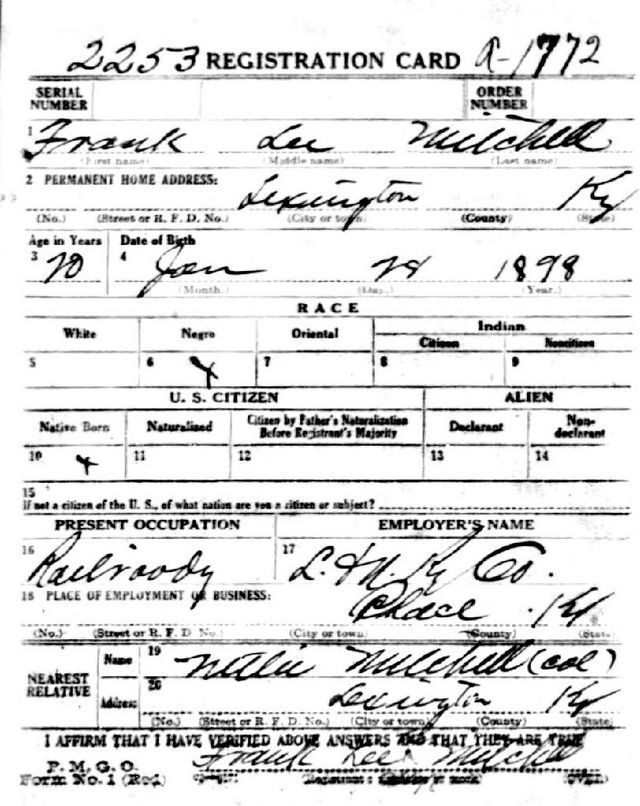 2253 REGISTRATION CARD A-1772
SERIAL NUMBER ORDER NUMBER
1 Frank Lee Mitchell
(First name) (Middle name) (Last name)
2 PERMANENT HOME ADDRESS: Lexington Ky
(No.) (Street or R. F. D. No.) (City or town) (County) (State)
Age in Years Date of Birth
3 20 4 Jan 28 1898
(Month.) (Day.) (Year.)
RACE
White Negro Oriental Indian
Citizen Noncitizen
5 6 X 7 8 9
U. S. CITIZEN ALIEN
Native Born Naturalized Citizen by Father's Naturalization Before Registrant's Majority Declarant Non-declarant
10 X 11 12 13 14
15
If not a citizen of the U. S., of what nation are you a citizen or subject?
PRESENT OCCUPATION EMPLOYER'S NAME
16 17 L. & N. Ry Co.
18 PLACE OF EMPLOYMENT OR BUSINESS: Ky
(No.) (Street or R. F. D. No.) (City or town) (County) (State)
NEAREST RELATIVE Name 19 Mitchell (col)
Address 20 Lexington Ky
(No.) (Street or R. F. D. No.) (City or town) (County) (State)
I AFFIRM THAT I HAVE VERIFIED ABOVE ANSWERS AND THAT THEY ARE TRUE
P. M. G. O.
Form No. 1 (Red) Frank Lee Mitchell
(OVER)